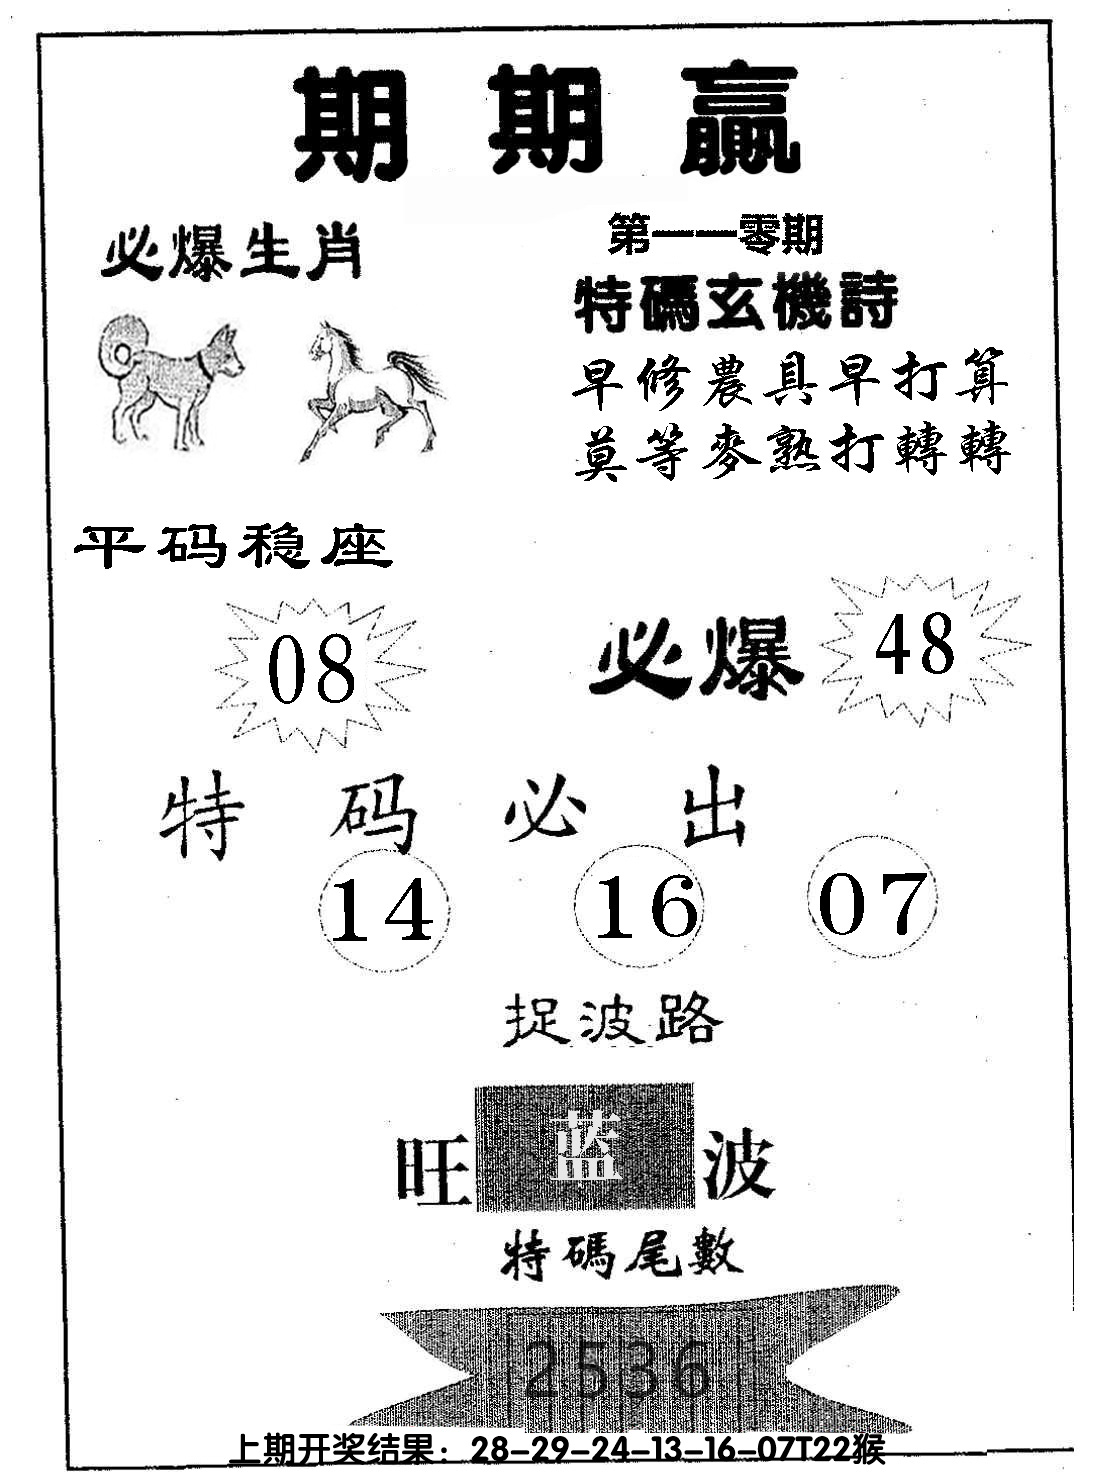 期期赢
必爆生肖
第一一零期
特碼玄機詩
早修農具早打算
莫等麥熟打轉轉
平码稳座
08
必爆
48
特码必出
14 16 07
捉波路
旺蓝波
特碼尾數
2536
上期开奖结果：28-29-24-13-16-07T22猴